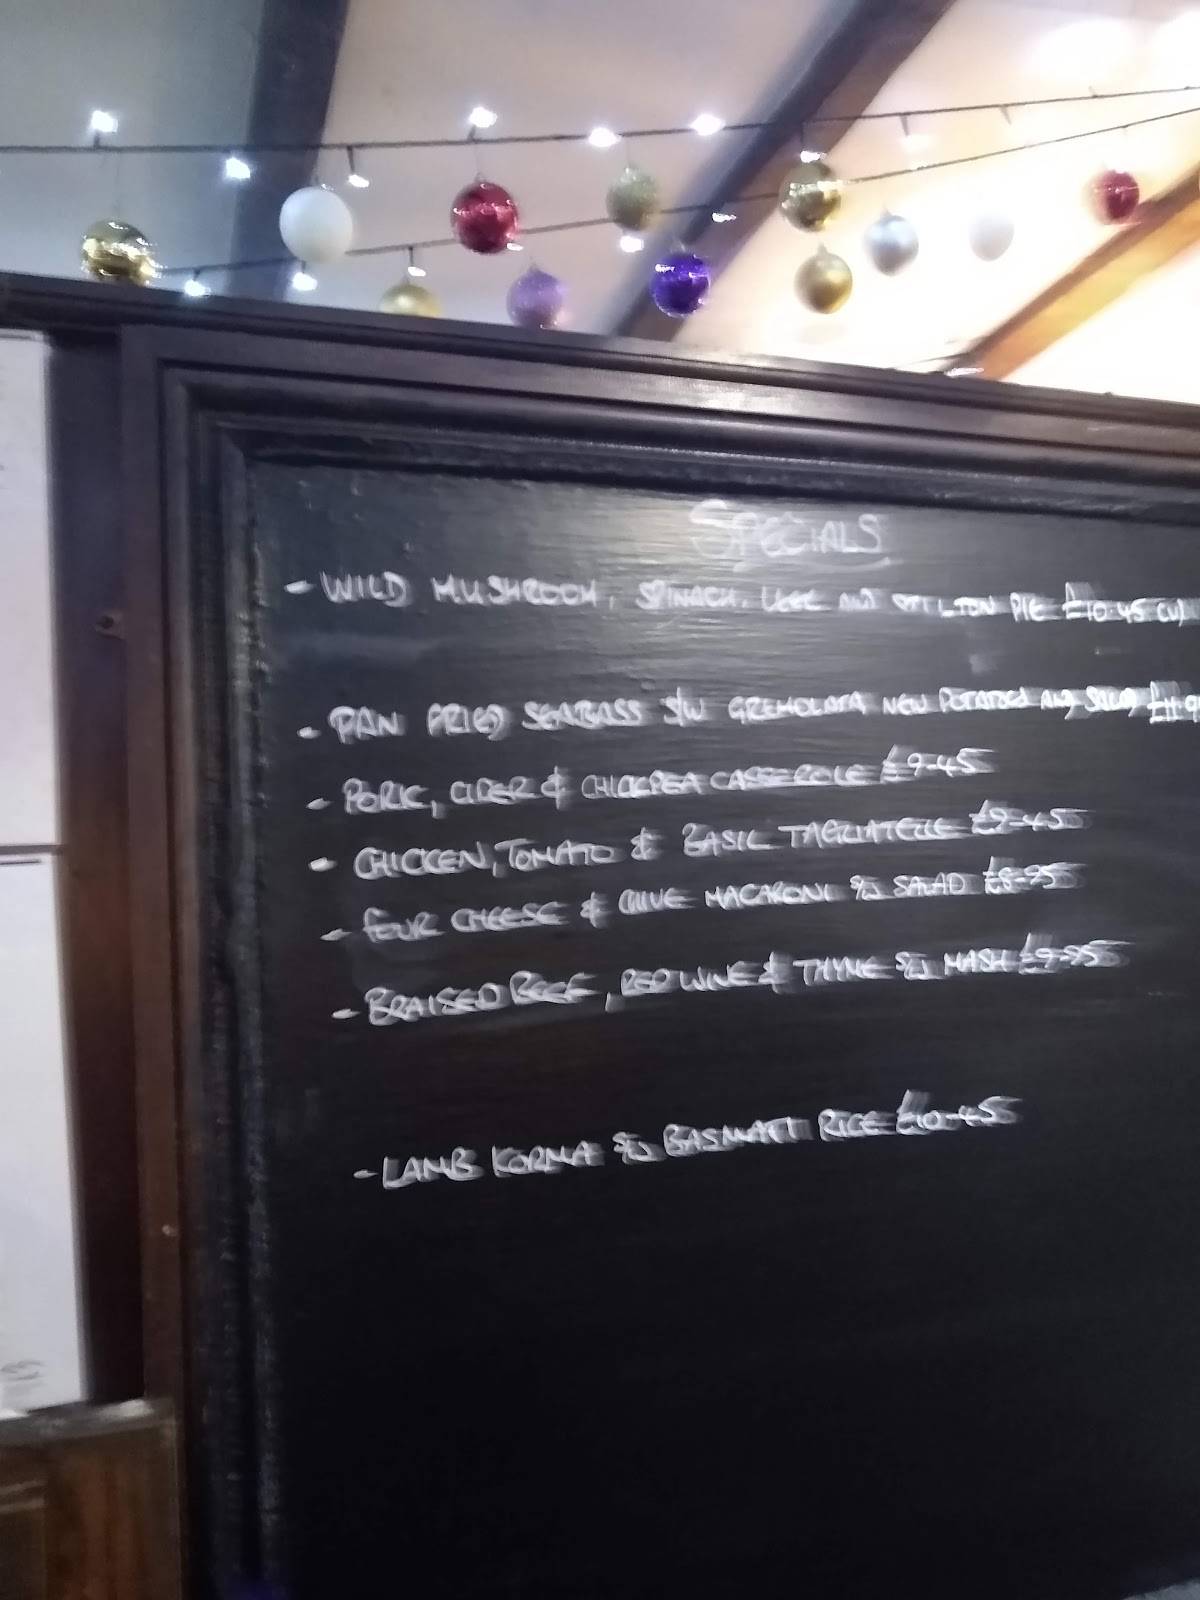 SPECIALS
- WILD MUSHROOM, SPINACH, LEEK AND STILTON PIE £10.45 (V)
- PAN FRIED SEABASS S/W GREMOLATA NEW POTATOES AND SALAD
- PORK, CIDER & CHICKPEA CASSEROLE £9-45
- CHICKEN, TOMATO & BASIL TAGLIATELLE £9-45
- FOUR CHEESE & CHIVE MACARONI S/W SALAD £8-95
- BRAISED BEEF, RED WINE & THYME S/W MASH £9-95
- LAMB KORMA S/W BASMATI RICE £10-45